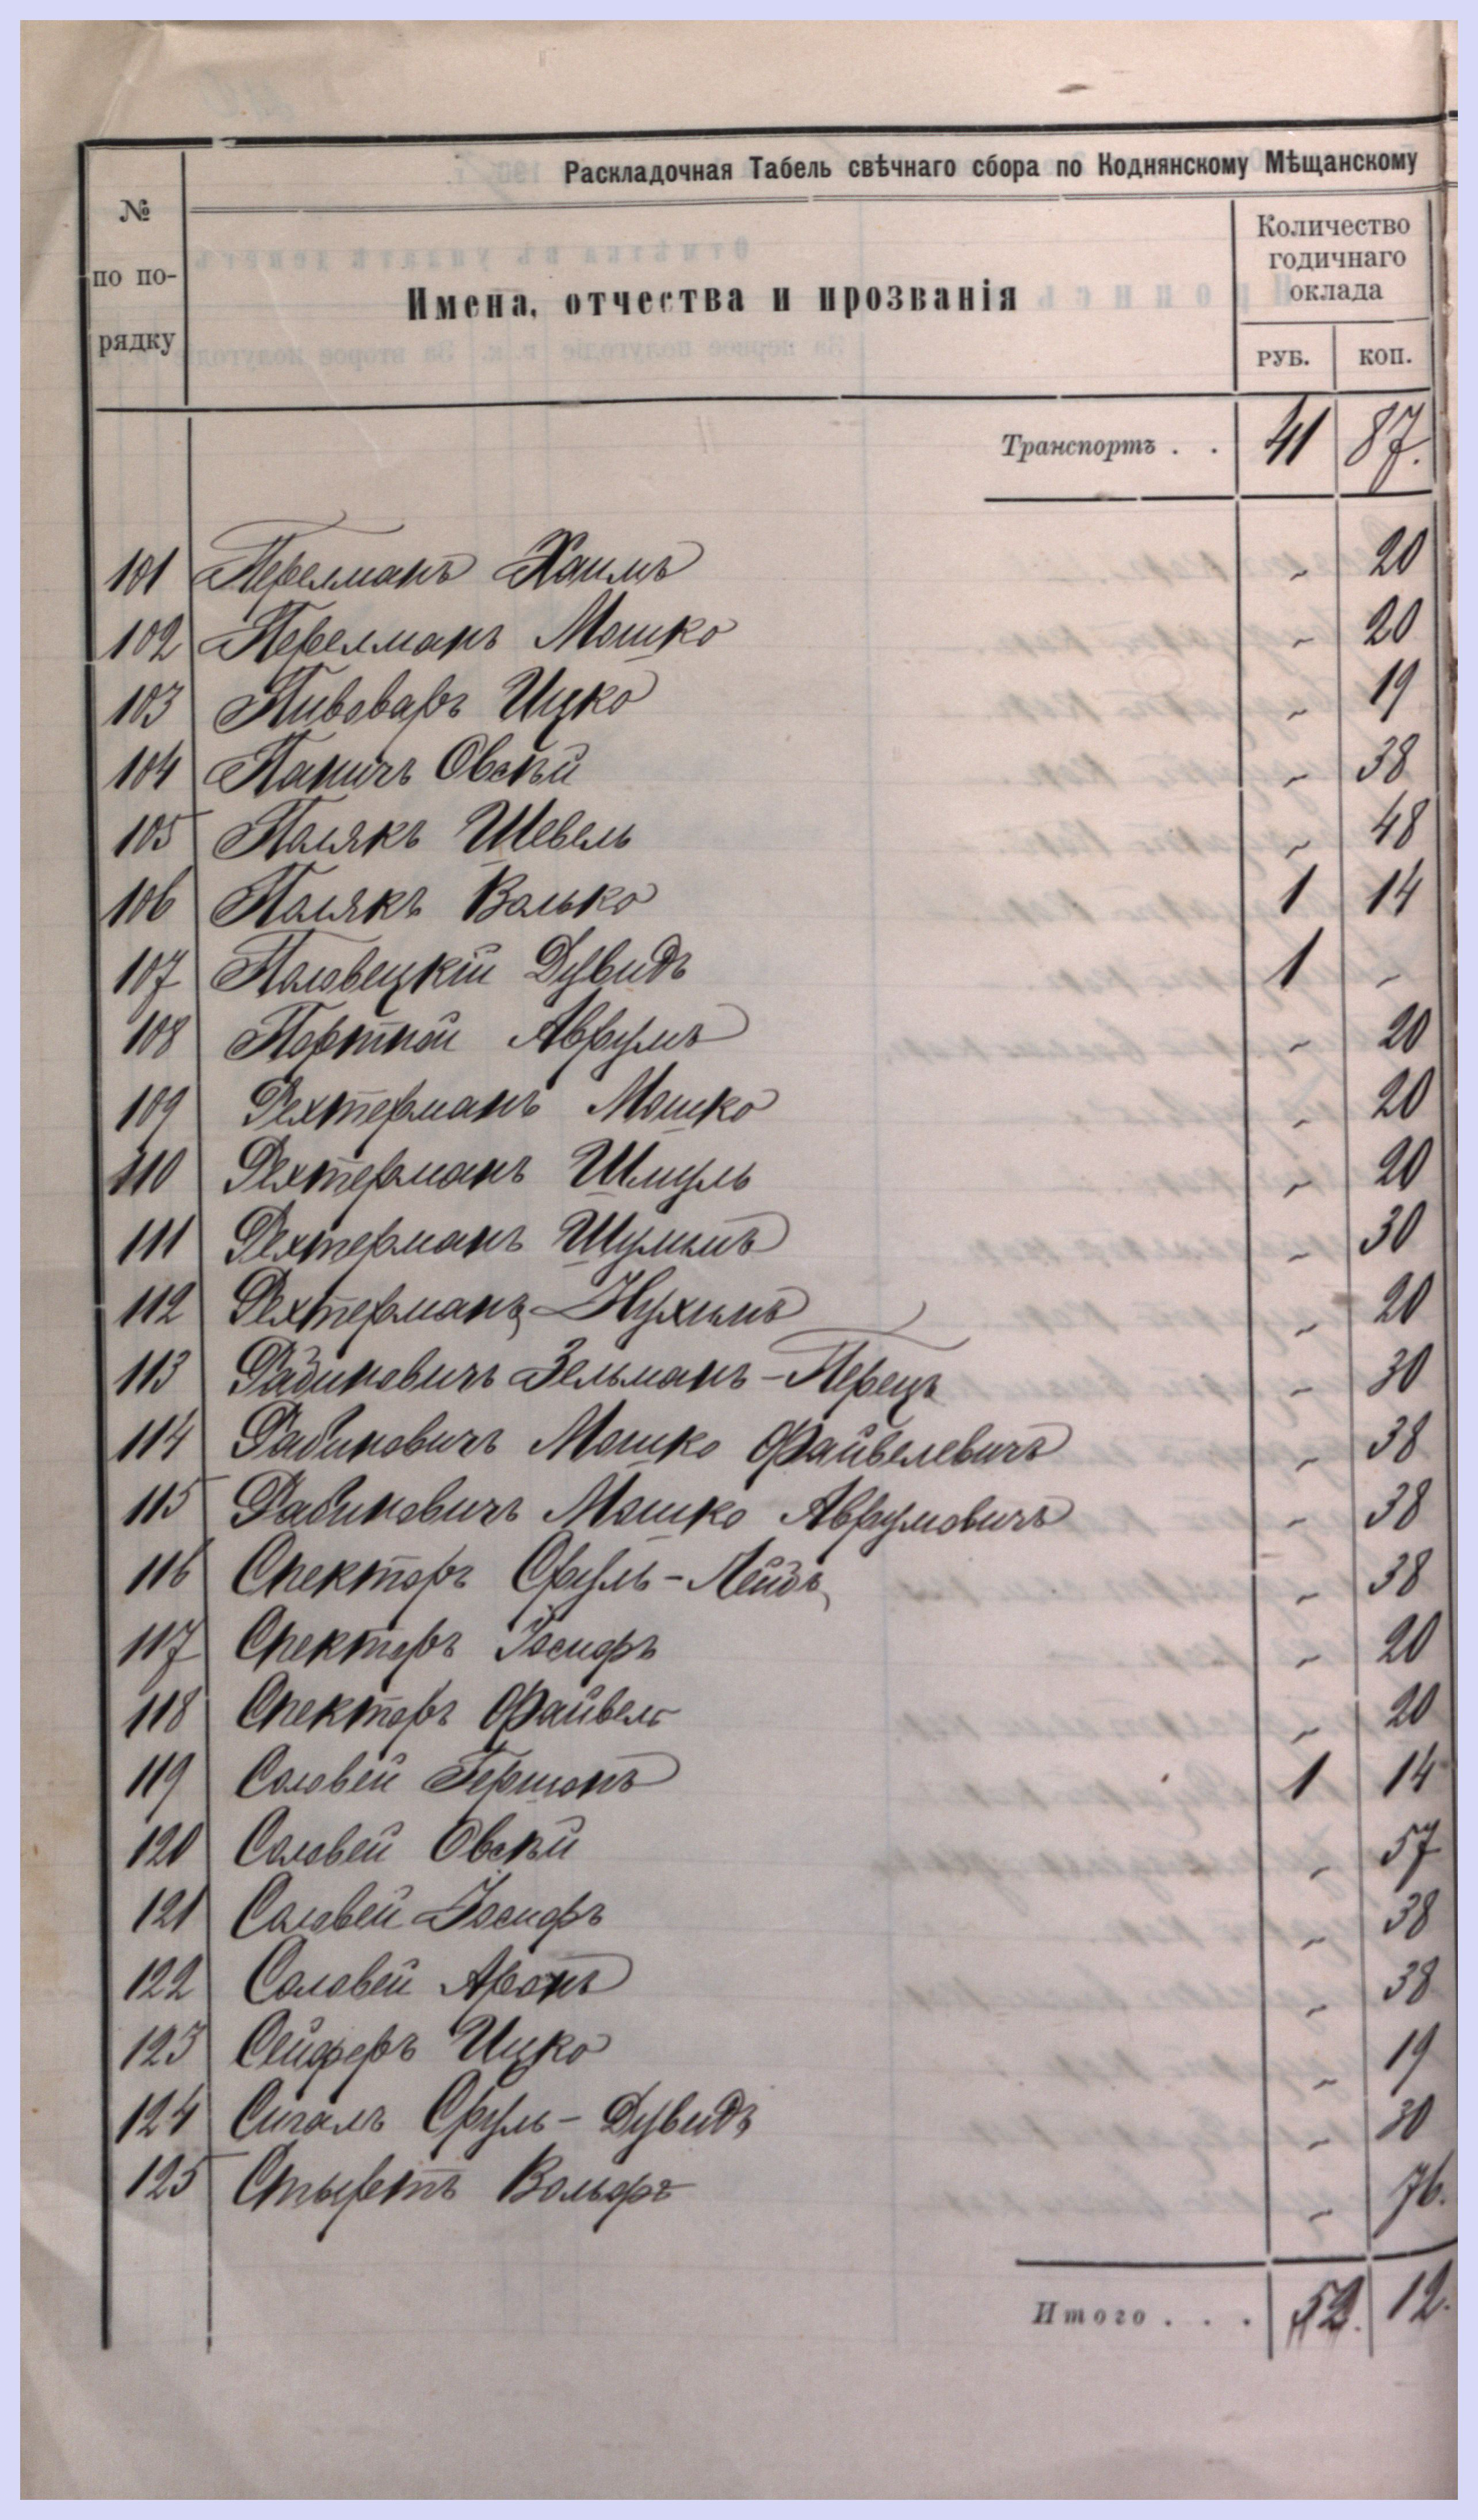 Раскладочная Табель свѣчнаго сбора по Коднянскому Мѣщанскому
№ по по-рядку
Имена, отчества и прозванія
Количество годичнаго оклада
РУБ. КОП.
Транспортъ . . 41 87.
101 Перелманъ Хаимъ - 20
102 Перелманъ Мошко - 20
103 Пивоваръ Ицко - 19
104 Паничъ Овсѣй - 38
105 Полякъ Шевель - 48
106 Полякъ Волько 1 14
107 Половецкій Дувидъ 1 -
108 Портной Аврумъ - 20
109 Рехтерманъ Мошко - 20
110 Рехтерманъ Шмуль - 20
111 Рехтерманъ Шулимъ - 30
112 Рехтерманъ Нухимъ - 20
113 Рабиновичъ Зельманъ-Перецъ - 30
114 Рабиновичъ Мошко Файвелевичъ - 38
115 Рабиновичъ Мошко Аврумовичъ - 38
116 Спекторъ Сруль-Лейбъ - 38
117 Спекторъ Іосифъ - 20
118 Спекторъ Файвель - 20
119 Соловей Гершонъ 1 14
120 Соловей Овсѣй - 57
121 Соловей Іосифъ - 38
122 Соловей Аронъ - 38
123 Сейферъ Ицко - 19
124 Сигалъ Сруль-Дувидъ - 30
125 Стыртъ Вольфъ - 76.
Итого . . . 52. 12.